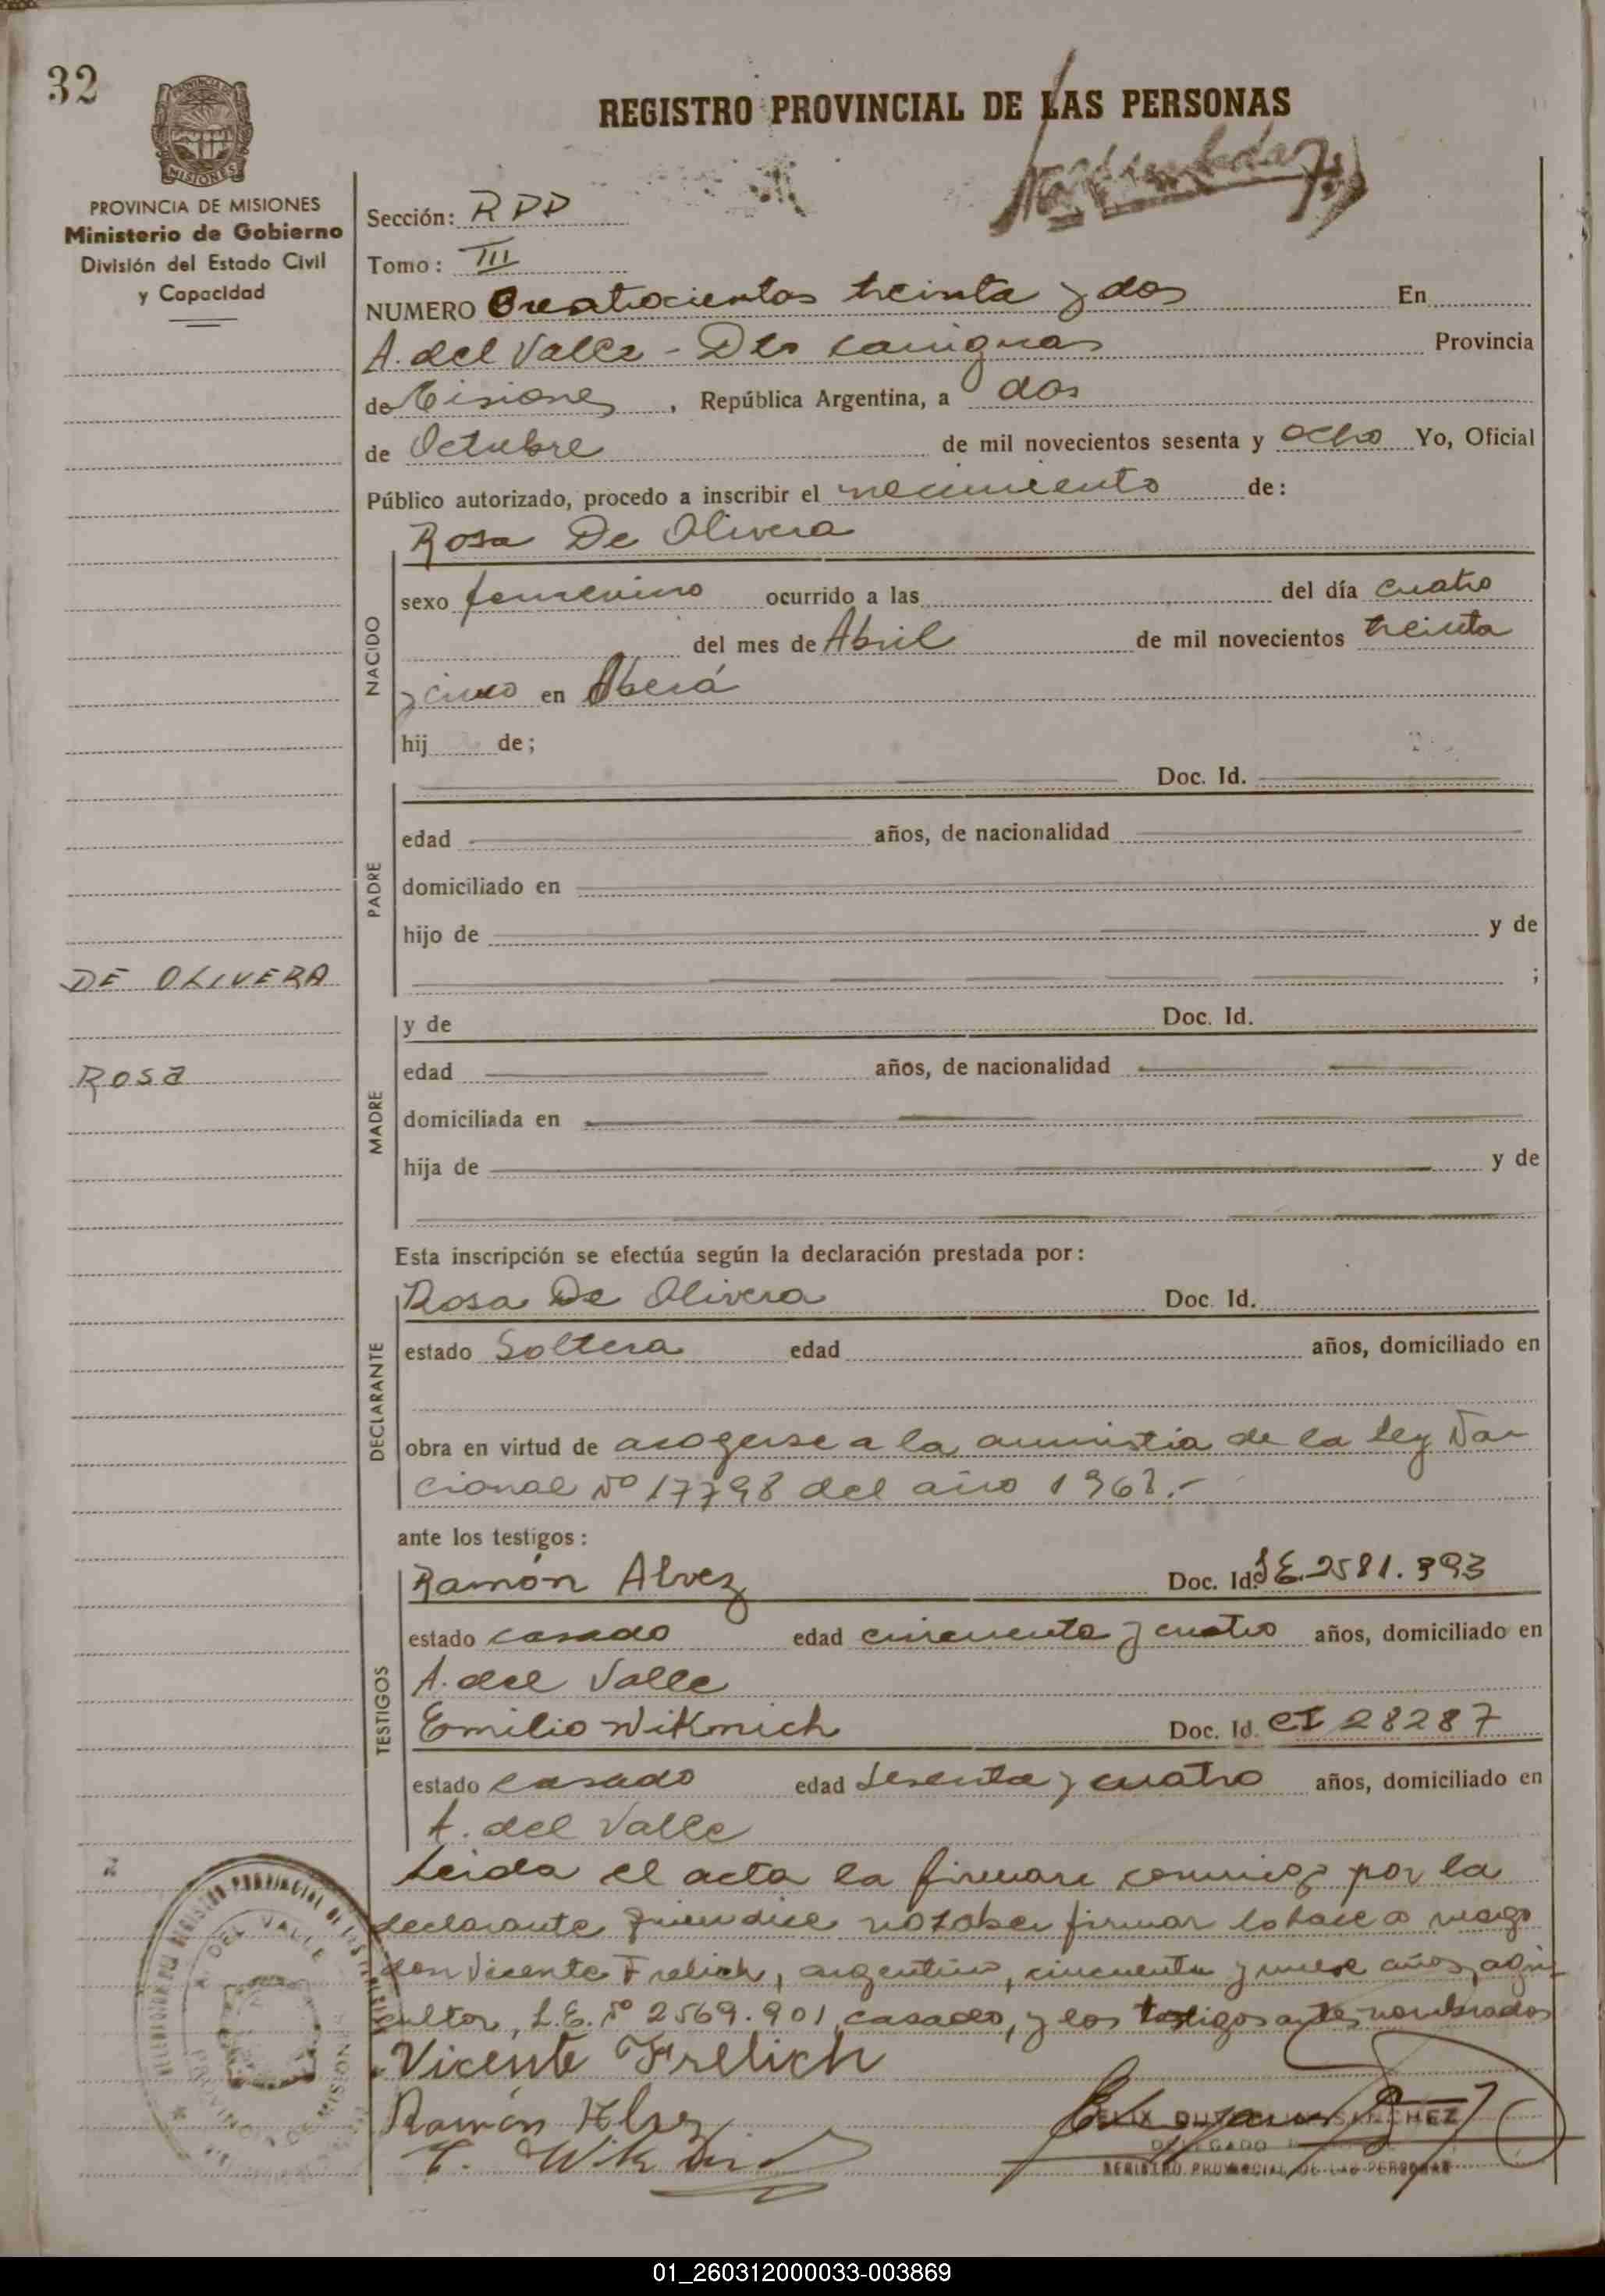 32
PROVINCIA DE MISIONES
Ministerio de Gobierno
División del Estado Civil
y Capacidad
REGISTRO PROVINCIAL DE LAS PERSONAS
Sección: RDD
Tomo: III
NUMERO Cuatrocientos treinta y dos En
A. del Valle - Dto Cainguas Provincia
de Misiones, República Argentina, a dos
de Octubre de mil novecientos sesenta y ocho Yo, Oficial
Público autorizado, procedo a inscribir el nacimiento de:
Rosa De Olivera
NACIDO
sexo femenino ocurrido a las del día cuatro
del mes de Abril de mil novecientos treinta
y cinco en Oberá
hij de;
PADRE
Doc. Id.
edad años, de nacionalidad
domiciliado en
hijo de y de
;
DE OLIVERA
ROSA
MADRE
y de Doc. Id.
edad años, de nacionalidad
domiciliada en
hija de y de
Esta inscripción se efectúa según la declaración prestada por:
DECLARANTE
Rosa De Olivera Doc. Id.
estado Soltera edad años, domiciliado en
obra en virtud de acogerse a la amnistia de la ley Na-
cional Nº 17798 del año 1968.-
ante los testigos:
TESTIGOS
Ramón Alvez Doc. Id. L.E. 2581.393
estado casado edad cincuenta y cuatro años, domiciliado en
A. del Valle
Emilio Wikmich Doc. Id. CI 28287
estado casado edad sesenta y cuatro años, domiciliado en
A. del Valle
Leida el acta la firman conmigo por la
declarante quien dice no saber firmar lo hace a ruego
don Vicente Frelich, argentino, cincuenta y nueve años, agri-
cultor, L.E. Nº 2569.901, casado, y los testigos antes nombrados
Vicente Frelich
Ramón Alvez
DELEGADO
REGISTRO PROVINCIAL DE LAS PERSONAS
A. DEL VALLE
01_260312000033-003869